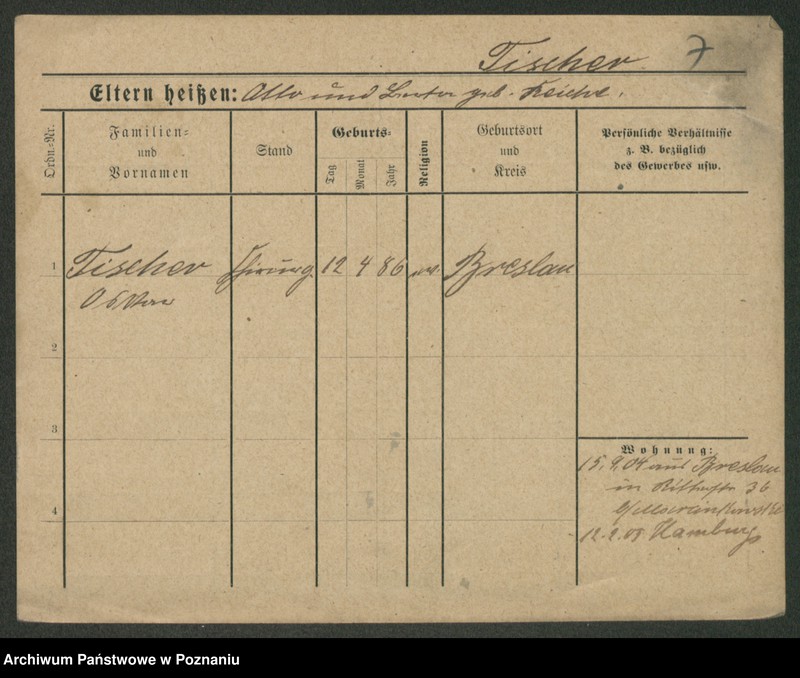 Tischer 7
Eltern heißen: Otto und geb. Reiche.
Ordn.-Nr.
Familien-
und
Vornamen
Stand
Geburts-
Tag
Monat
Jahr
Religion
Geburtsort
und
Kreis
Persönliche Verhältnisse
z. B. bezüglich
des Gewerbes usw.
1 Tischer 12 4 86 Breslau
Oskar
2
3
4
Wohnung:
15.9.04 aus Breslau
in 36
12.2.08 Hamburg
Archiwum Państwowe w Poznaniu